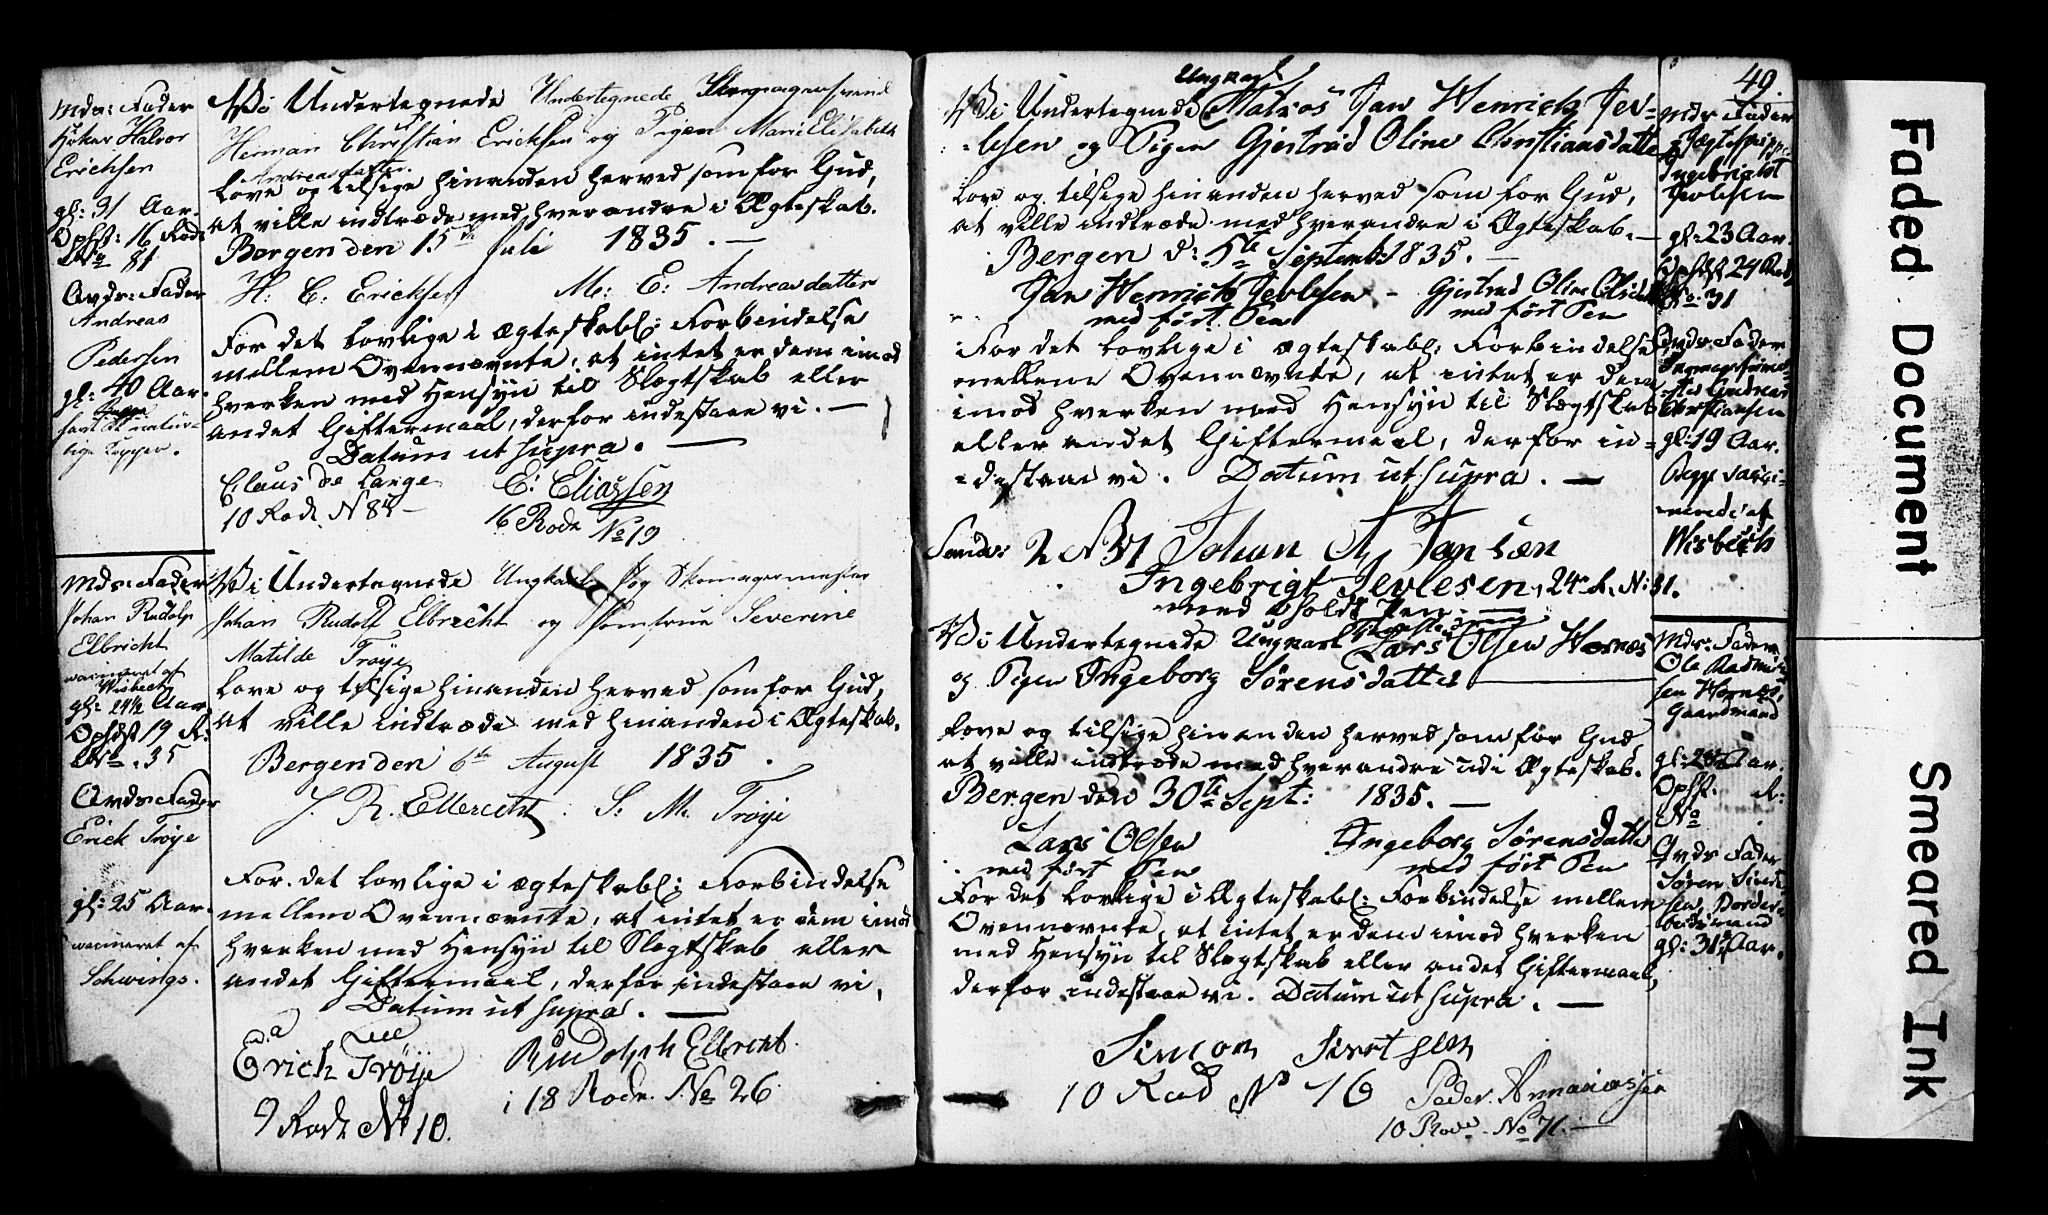 Mds: Fader
Halvor
Erichsen
gl: 31 Aar.
Ophst: 16 Rode
No 81
Avds: Fader
Andreas
Pedersen
gl: 40 Aar.
Vi Undertegnede Undertegnede
Herman Christian Ericksen og Pigen Marie Elisabeth
Andreasdatter
Love og tilsige hinanden herved som for Gud,
at ville indtræde med hverandre i Ægteskab.
Bergen den 15de Juli 1835. —
H: C: Ericksen M: E: Andreasdatter
For det lovlige i ægteskabl: Forbindelse
mellem Ovennævnte, at intet er dem imod
hverken med Hensyn til Slægtskab eller
andet Giftermaal, derfor indestaae vi. —
Datum ut supra. —
Claus de Lange E: Eliassen
10 Rode N 84 — 16 Rode No 19
Mds: Fader
Johan Rudolp
Elbricht
vaccineret af
Wisbech
gl: 24½ Aar
Ophdst 19 R:
No. 35
Avds: Fader
Erick Trøye
gl: 25 Aar.
vaccineret af
Schwings.
Vi Undertegnede Ungkarl og Skomagermester
Johan Rudolf Elbrecht og Jomfrue Severine
Matilde Trøye
Love og tilsige hinanden herved som for Gud,
at ville indtræde med hinanden i Ægteskab.
Bergen den 6te August 1835.
J. R. Elbrecht. S: M. Trøye
For det lovlige i ægteskabl: Forbindelse
mellem Ovennævnte, at intet er dem imod
hverken med Hensyn til Slægtskab eller
andet Giftermaal, derfor indestaae vi,
Datum ut supra. —
Erich Trøye Rudolph Elbrecht.
9 Rode No 10. i 18 Rode No 26
49.
Ungkarl
Vi Undertegnede Matros Jan Henrich Jev-
-lesen og Pigen Gjertrud Oline Christiansdatter
Love og tilsige hinanden herved som for Gud,
at ville indtræde med hverandre i Ægteskab. —
Bergen d: 5te Septemb: 1835. —
Jan Henrich Jevlesen - Gjertrud Oline
med ført Pen med ført Pen
For det lovlige i ægteskabl: Forbindelse
mellem Ovennævnte, at intet er dem
imod hverken med Hensyn til Slægtskab
eller andet Giftermaal, derfor in-
-destaae vi. Datum ut supra. —
2 N 31 Johan Jansæn
Ingebrigt Jevlesen, 24 R. N: 31.
med Pen.
Mds Fader
Ingebricht
Jevlesen
gl: 23 Aar.
Ophdst 24 Rod
No. 31
Avds: Fader
Andreas
Christiansen
gl: 19 Aar.
Wisbech
Vi Undertegnede Ungkarl Lars Olsen Hornæs
og Pigen Ingeborg Sørensdatter
Love og tilsige hinanden herved som for Gud
at ville indtræde med hverandre udi Ægteskab.
Bergen den 30te Sept: 1835. —
Lars Olsen Ingeborg Sørensdatter
med ført Pen med ført Pen
For det lovlige i Ægteskabl: Forbindelse mellem
Ovennævnte, at intet er dem imod hverken
med Hensyn til Slægtskab eller andet Giftermaal,
derfor indestaae vi. Datum ut supra. —
Simon
10 Rode No 16 Peder
10 Rode No 71. —
Mds: Fader
Ole
sen Hornæs,
Gaardmand
gl: Aar.
Ophst. R:
No
Avds Fader
Søren
gl: 31 Aar.
Faded Document
Smeared Ink